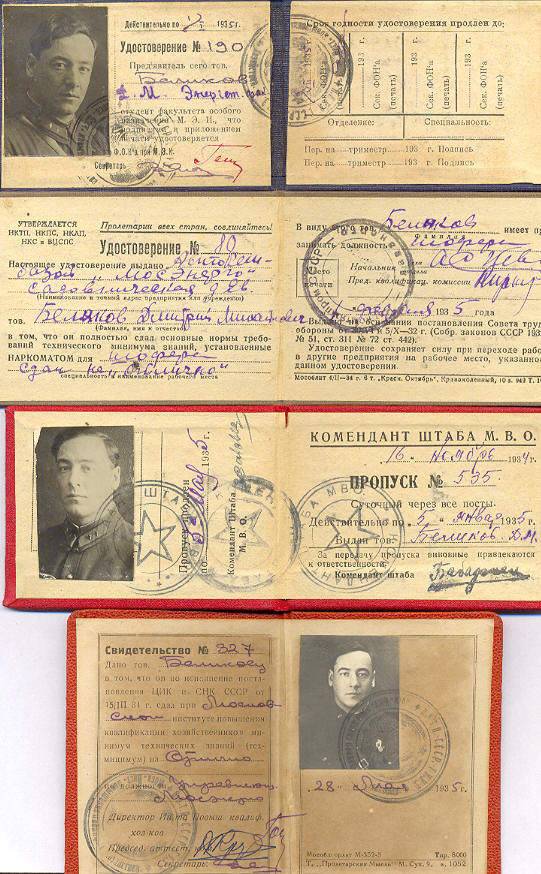 Действительно по 1935 г.
Удостоверение № 190
Пред'явитель сего тов.
Беликов
Д. М. Энергет. фак
студент факультета особого
назначения М. Э. И., что
подписью и приложением
печати удостоверяется
Ф.О.Н'а при М.Э.И.
Секретарь
Срок годности удостоверения продлен до:
193 г.
Сек. ФОН'а
(печать)
193 г.
Сек. ФОН'а
(печать)
193 г.
Сек. ФОН'а
(печать)
193 г.
Сек. ФОН'а
(печать)
Отделение: Специальность:
Пер. на триместр 193 г. Подпись
Пер. на триместр 193 г. Подпись
УТВЕРЖДАЕТСЯ
НКТП, НКПС, НКЛП,
НКС и ВЦСПС
Пролетарии всех стран, соединяйтесь!
Удостоверение № 80
Настоящее удостоверение выдано
базой „Мосэнерго"
Садовническая
(Наименование и точный адрес предприятия или учреждения)
тов. Беликов Дмитрий Михайлович
(Фамилия, имя и отчество)
в том, что он полностью сдал основные нормы требо-
ваний технического минимума знаний, установленные
НАРКОМАТОМ для шофера
сдал на „отлично"
специальность и наименование рабочего места
В виду этого тов. Беликов имеет пр
Фамилия
занимать должность шофера
Место
печати
Начальник
Пред. квалификац. комиссии
1 февраля 1935 года
Выдано на основании постановления Совета труд
обороны и 5/X—32 г. (Собр. законов СССР 193
№ 51, ст. 311 № 72 ст. 442).
Удостоверение сохраняет силу при переходе работ
в другие предприятия на рабочее место, указанное
данном удостоверении.
КОМЕНДАНТ ШТАБА М. В. О.
16 ноябрь 1934 г.
ПРОПУСК № 535
Суточный через все посты.
Действительно по 5 января 1935 г.
Выдан тов. Беликов. Д.М.
За передачу пропуска виновные привлекаются
к ответственности.
Комендант штаба
Пропуск продлен
по 1935 г.
Комендант Штаба
М. В. О.
Свидетельство № 327
Дано тов. Беликову
в том, что он во исполнение поста-
новления ЦИК и СНК СССР от
15/III 31 г. сдал при Москов
ском институте повышения
квалификации хозяйственников ми-
нимум технических знаний (тех-
минимум) на Отлично
по должности управляющ.
Мосэнерго
Директор Ин-та Повыш. квалиф.
хоз-ков
Председ. аттест.
Секретарь
28 мая 1935 г.
Т. „Пролетарская Мысль" М. Сух. 9, з. 1052
Тир. 8000